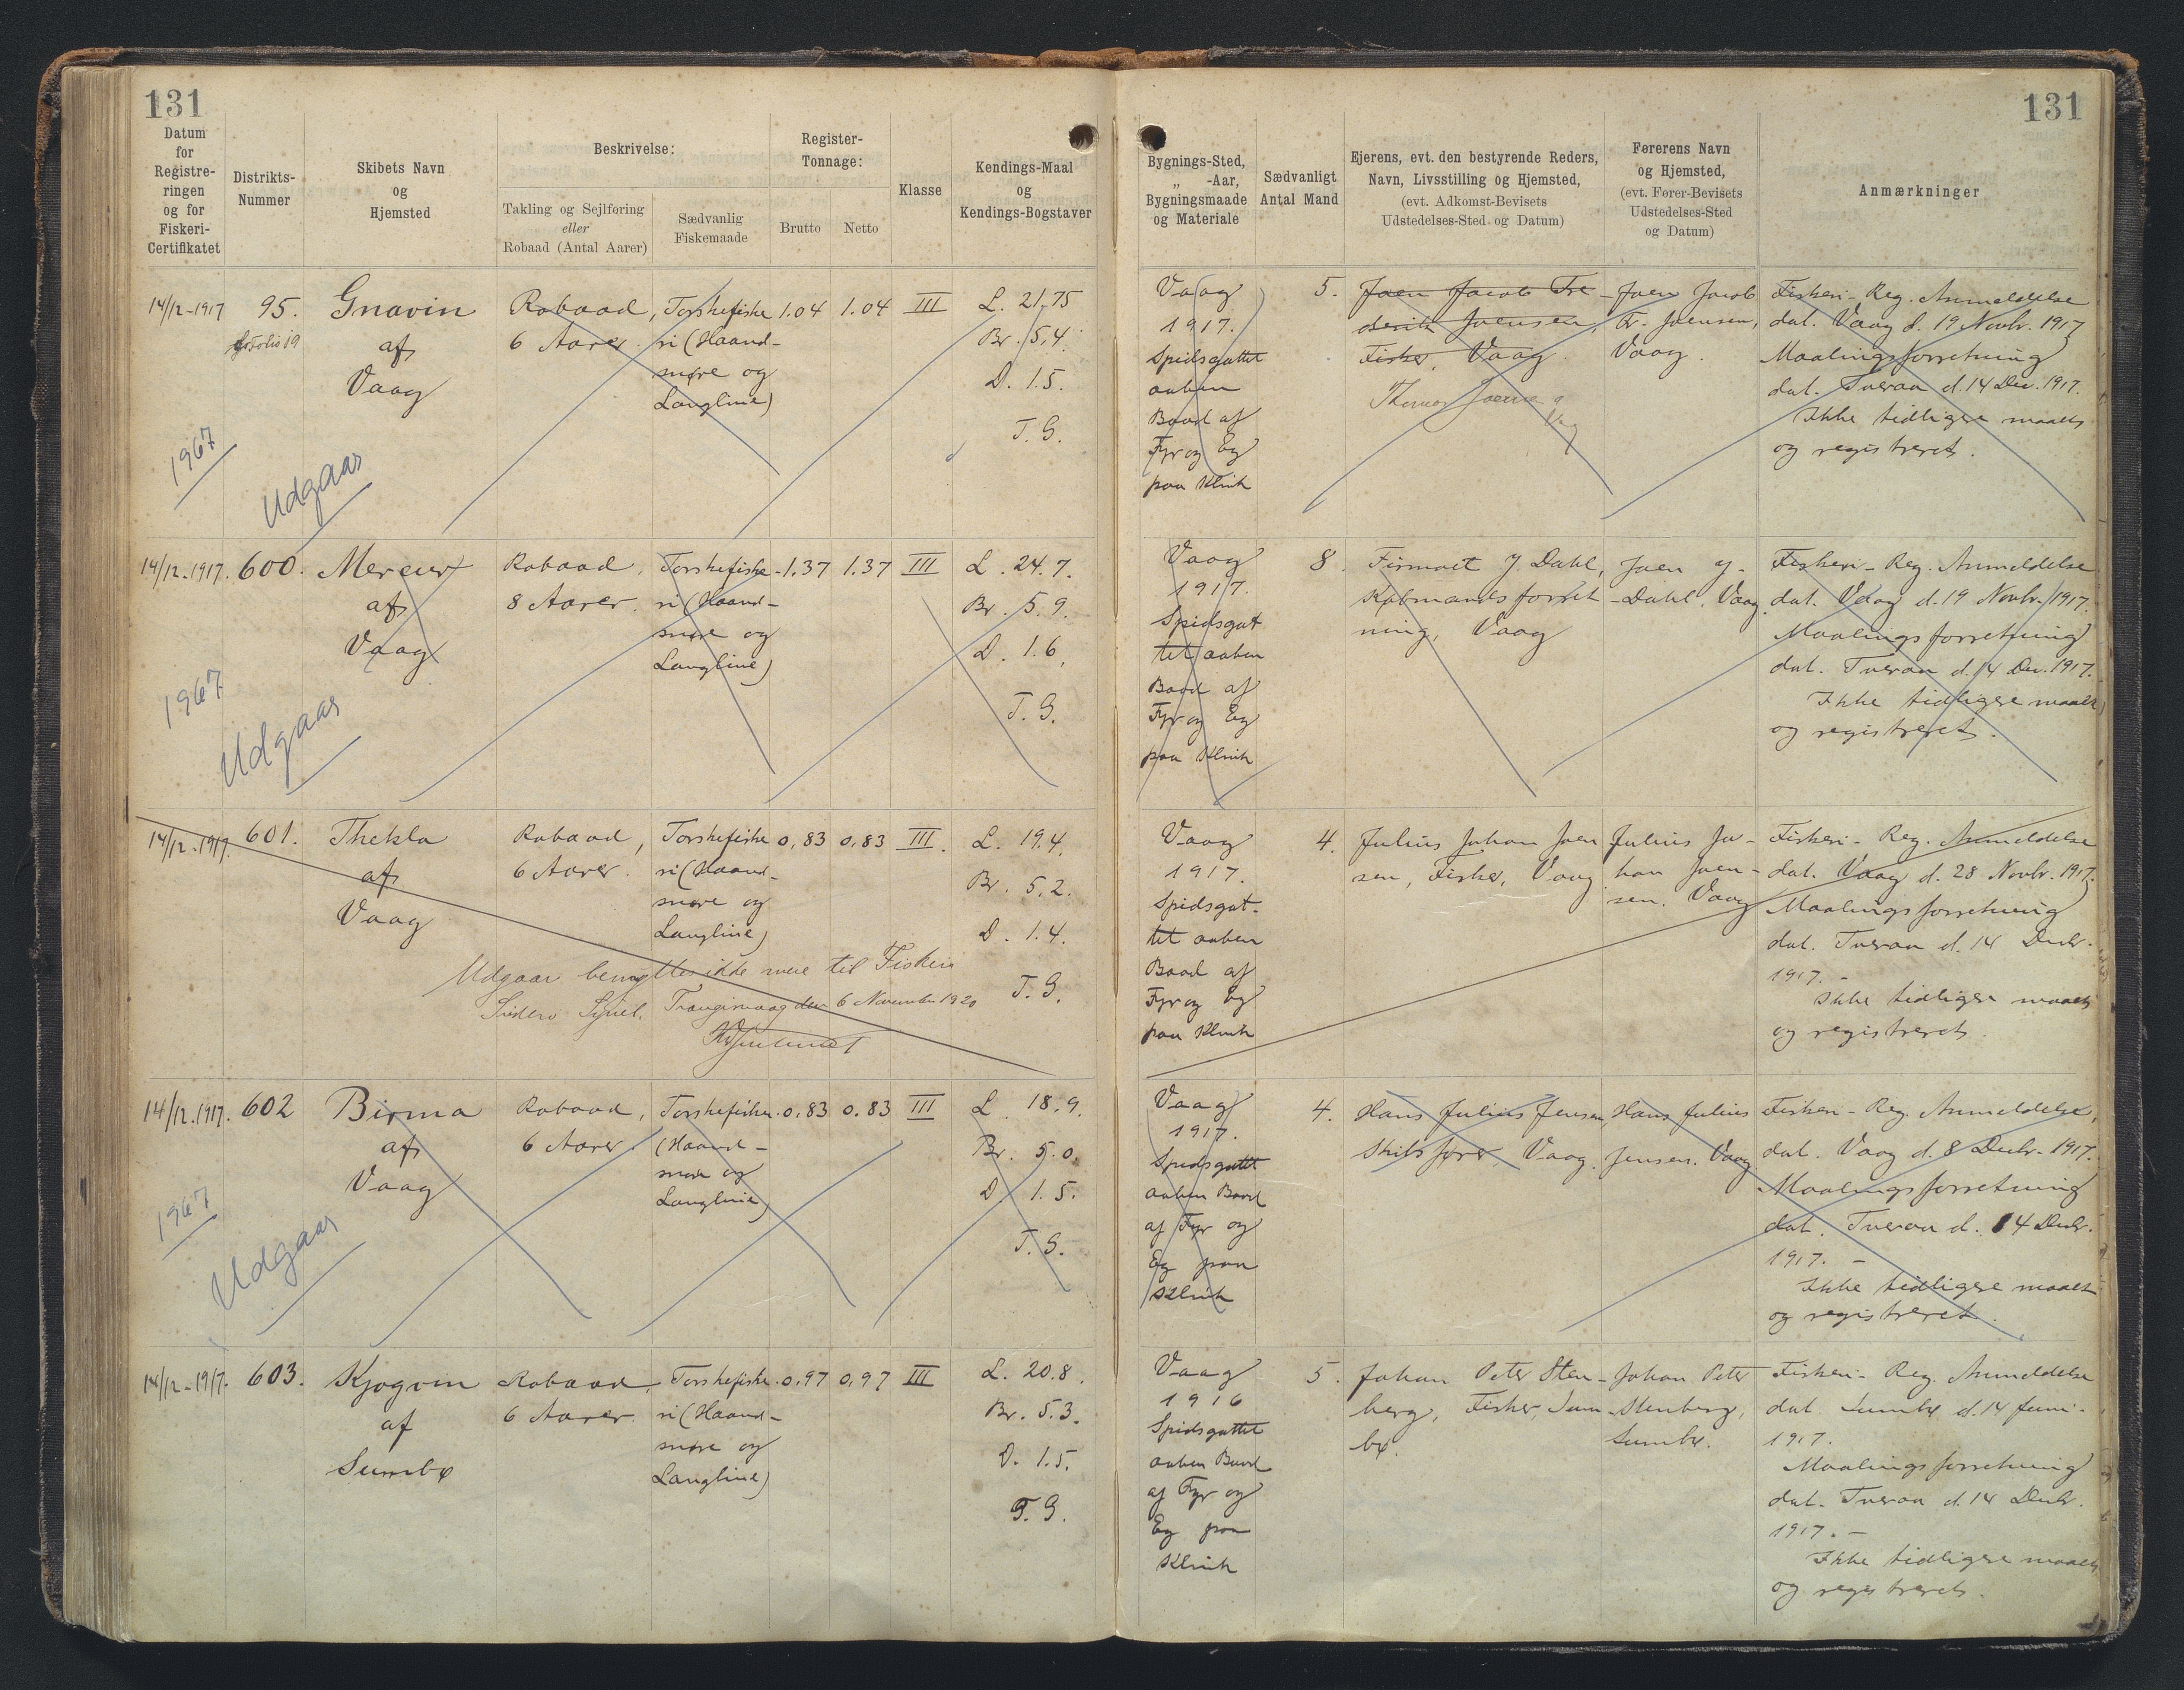 131
131
Datum
for
Registre-
ringen
og for
Fiskeri-
Certifikatet
Distrikts-
Nummer
Skibets Navn
og
Hjemsted
Beskrivelse:
Takling og Sejlføring
eller
Robaad (Antal Aarer)
Sædvanlig
Fiskemaade
Register-
Tonnage:
Brutto
Netto
Klasse
Kendings-Maal
og
Kendings-Bogstaver
Bygnings-Sted,
„ -Aar,
Bygningsmaade
og Materiale
Sædvanligt
Antal Mand
Ejerens, evt. den bestyrende Reders,
Navn, Livsstilling og Hjemsted,
(evt. Adkomst-Bevisets
Udstedelses-Sted og Datum)
Førerens Navn
og Hjemsted,
(evt. Fører-Bevisets
Udstedelses-Sted
og Datum)
Anmærkninger
14/12-1917
95.
Folio 19
Gnavin
af
Vaag
Robaad,
6 Aarer.
Torskefiske
ri (Haand-
snøre og
Langline)
1.04
1.04
III
L. 21.75
Br. 5,4.
D. 1.5.
T. G.
Vaag
1917.
Spidsgattet
aaben
Baad af
Fyr og Eg
paa Klink
5.
Joen Jacob Fre-
derik Joensen,
Fisker, Vaag.
Joen Jacob
Fr. Joensen,
Vaag.
Fiskeri-Reg. Anmeldelse
dat. Vaag d. 19 Novbr. 1917
Maalingsforretning
dat. Tveraa d. 14 Dec. 1917.
Ikke tidligere maalt
og registreret.
1967
Udgaar
14/12-1917.
600.
Mercur
af
Vaag
Robaad,
8 Aarer.
Torskefiske
ri (Haand-
snøre og
Langline)
1.37
1.37
III
L. 24.7.
Br. 5.9.
D. 1.6.
T. G.
Vaag
1917.
Spidsgat
tet aaben
Baad af
Fyr og Eg
paa Klink
8.
Firmaet J. Dahl,
Købmandsforret
ning, Vaag
Joen J-
-Dahl, Vaag
Fiskeri-Reg. Anmeldelse
dat. Vaag d. 19 Novbr. 1917.
Maalingsforretning
dat. Tveraa d. 14 Dec. 1917.
Ikke tidligere maalt
og registreret.
1967
Udgaar
14/12-1917.
601.
Thekla
af
Vaag
Robaad,
6 Aarer.
Torskefiske
ri (Haand-
snøre og
Langline)
0,83
0,83
III.
L. 19.4.
Br. 5.2.
D. 1.4.
T. G.
Udgaar benyttes ikke mere til Fiskeri
Suderø Syssel. Trangisvaag den 6 November 1920
Vaag
1917.
Spidsgat-
tet aaben
Baad af
Fyr og Eg
paa Klink
4.
Julius Johan Joen
sen, Fisker, Vaag
Julius Jo-
han Joen-
sen. Vaag
Fiskeri-Reg. Anmeldelse
dat. Vaag d. 28 Novbr. 1917.
Maalingsforretning
dat. Tveraa d. 14 Decbr.
1917.-
Ikke tidligere maalt
og registreret.
14/12.1917.
602
Birma
af
Vaag
Robaad,
6 Aarer.
Torskefiskeri
(Haand-
snøre og
Langline)
0,83
0.83
III
L. 18.9.
Br. 5.0.
D. 1.5.
T. G.
Vaag
1917.
Spidsgattet
aaben Baad
af Fyr og
Eg paa
Klink
4.
Hans Julius Jensen
Skibsfører, Vaag.
Hans Julius
Jensen. Vaag
Fiskeri-Reg. Anmeldelse,
dat. Vaag d. 8 Decbr. 1917.
Maalingsforretning
dat. Tveraa d. 14 Decbr.
1917. -
Ikke tidligere maalt
og registreret.
1967
Udgaar
14/12-1917.
603.
Kjøgvin
af
Sumbø
Robaad,
6 Aarer.
Torskefiske
ri (Haand-
snøre og
Langline)
0,97
0,97
III
L. 20.8.
Br. 5.3.
D. 1.5.
T. G.
Vaag
1916
Spidsgattet
aaben Baad
af Fyr og
Eg paa
Klink
5.
Johan Peter Sten-
berg, Fisker, Sum
bø.
Johan Peter
Stenberg,
Sumbø.
Fiskeri-Reg. Anmeldelse
dat. Sumbø d. 14 Juni-
1917.
Maalingsforretning
dat. Tveraa d. 14 Decbr.
1917.-
Ikke tidligere maalt
og registreret.